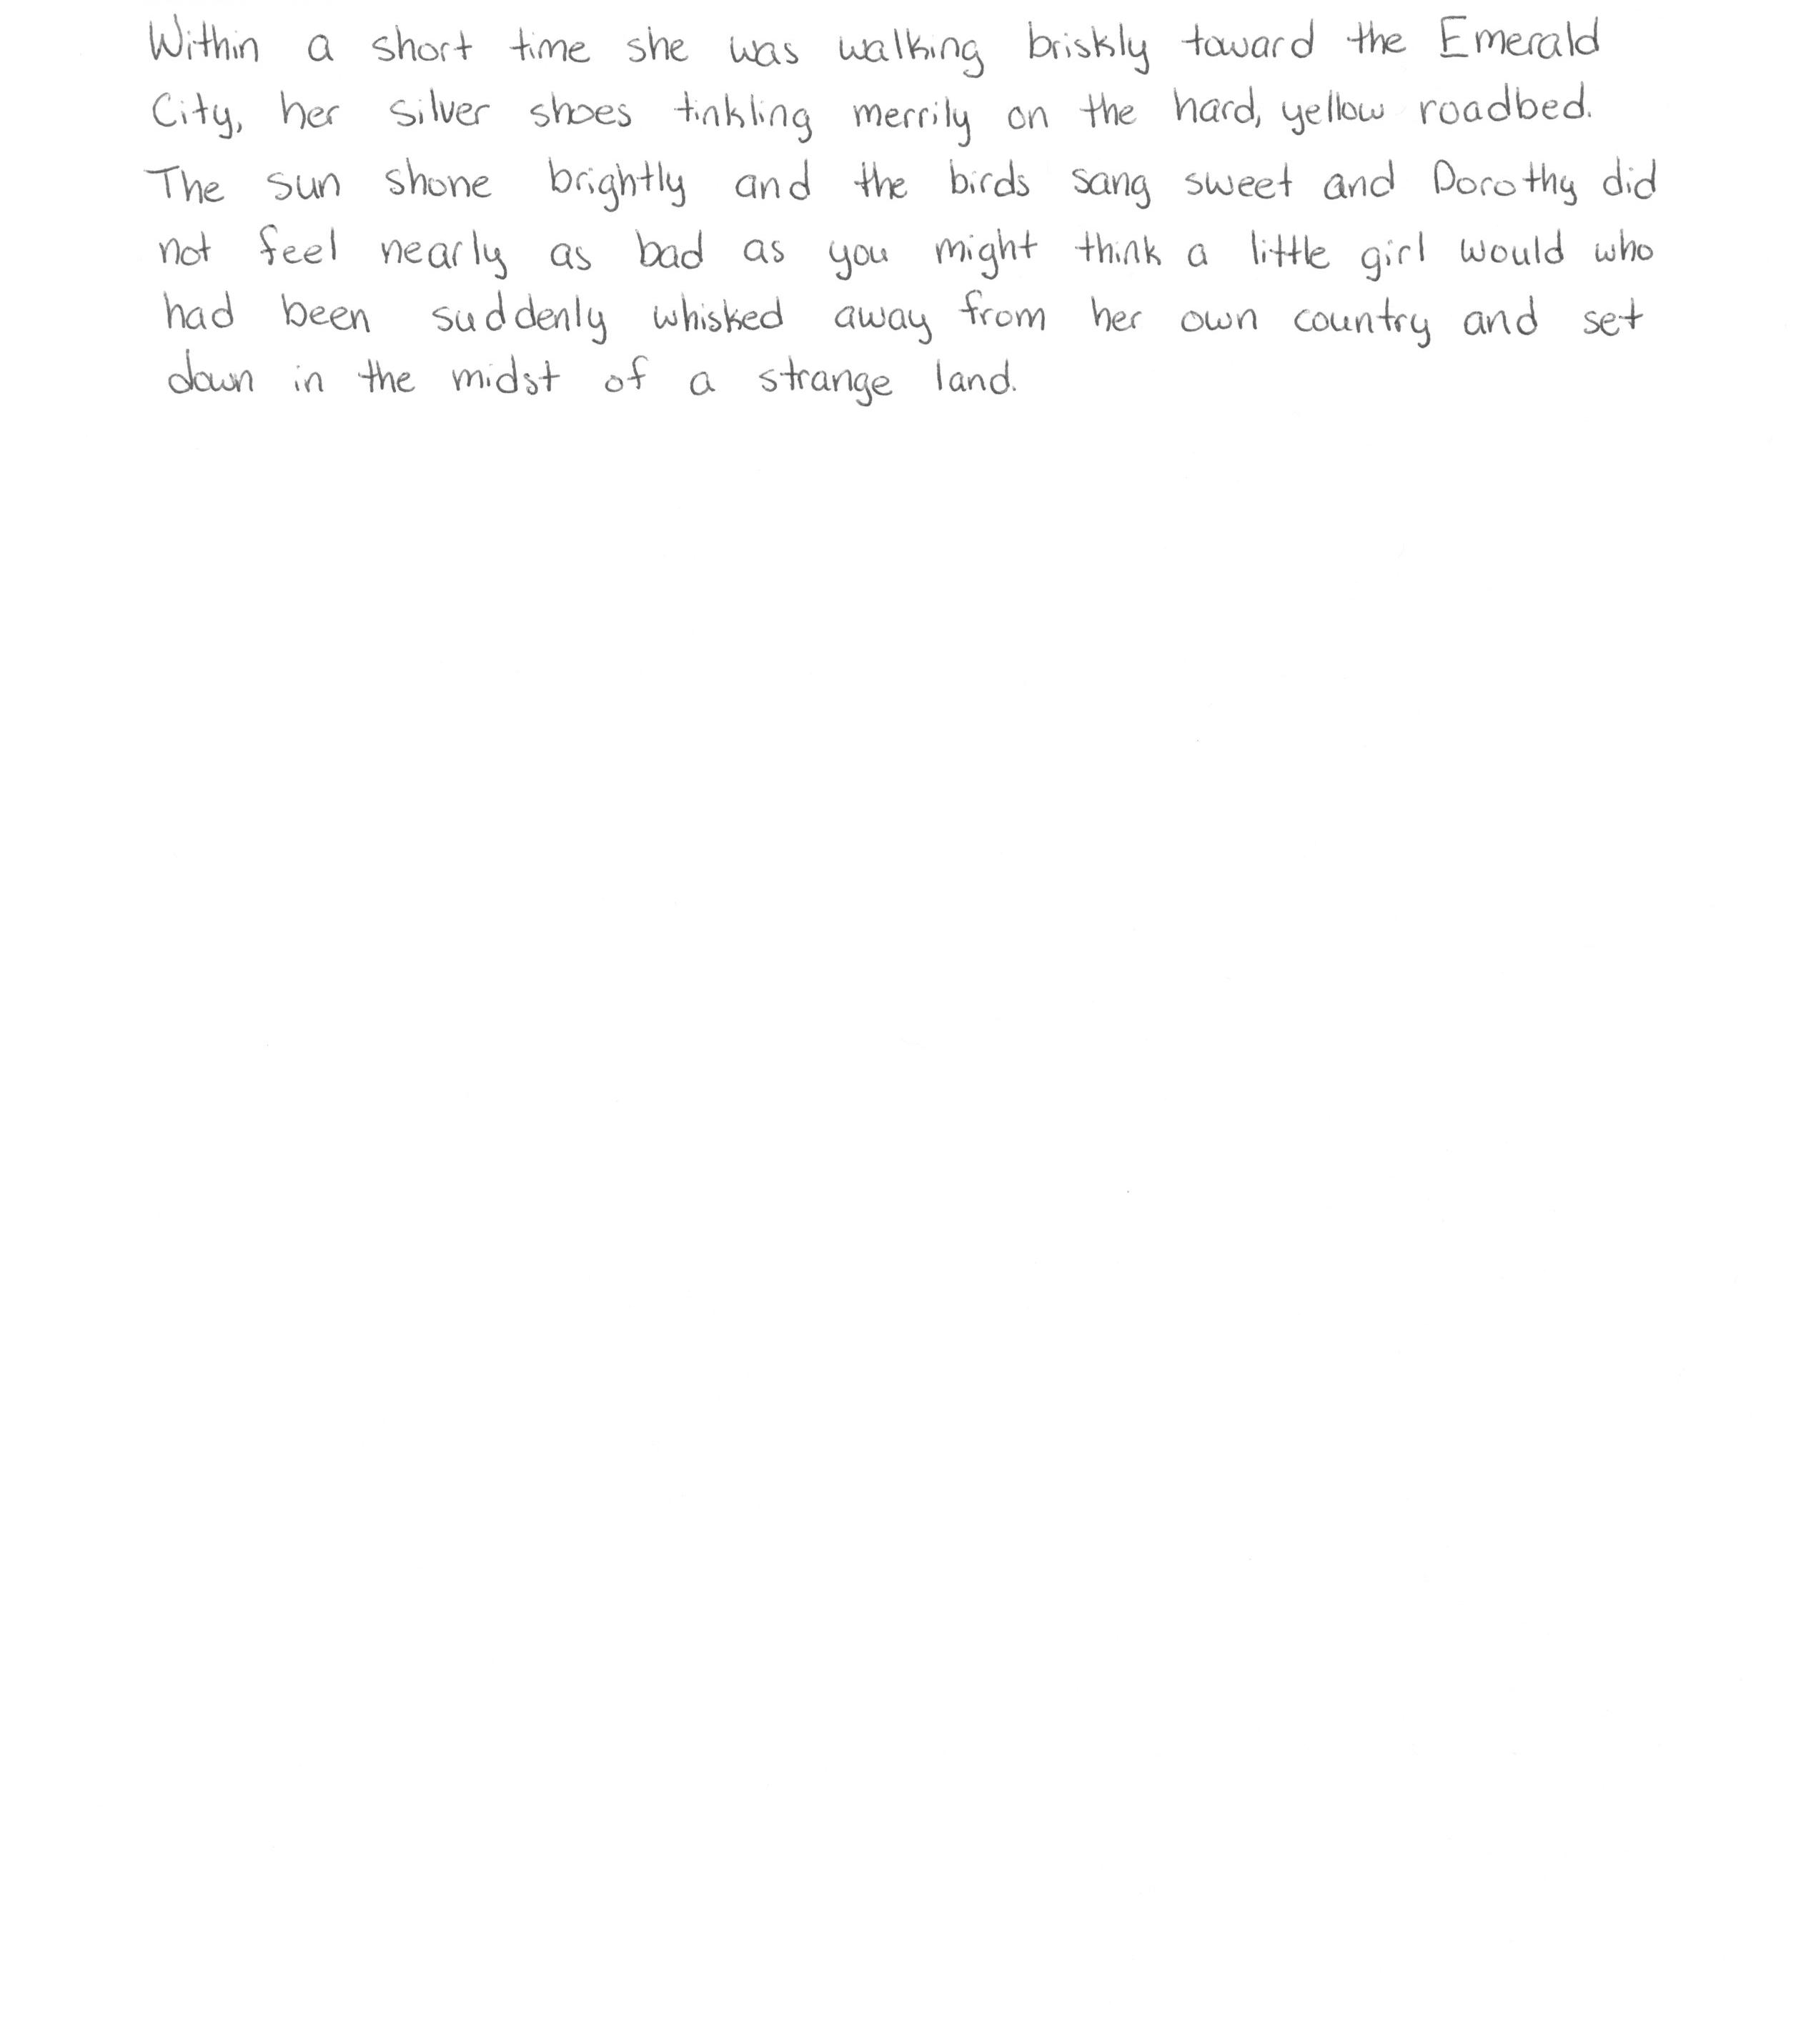 Within a short time she was walking briskly toward the Emerald
City, her silver shoes tinkling merrily on the hard, yellow roadbed.
The sun shone brightly and the birds sang sweet and Dorothy did
not feel nearly as bad as you might think a little girl would who
had been suddenly whisked away from her own country and set
down in the midst of a strange land.